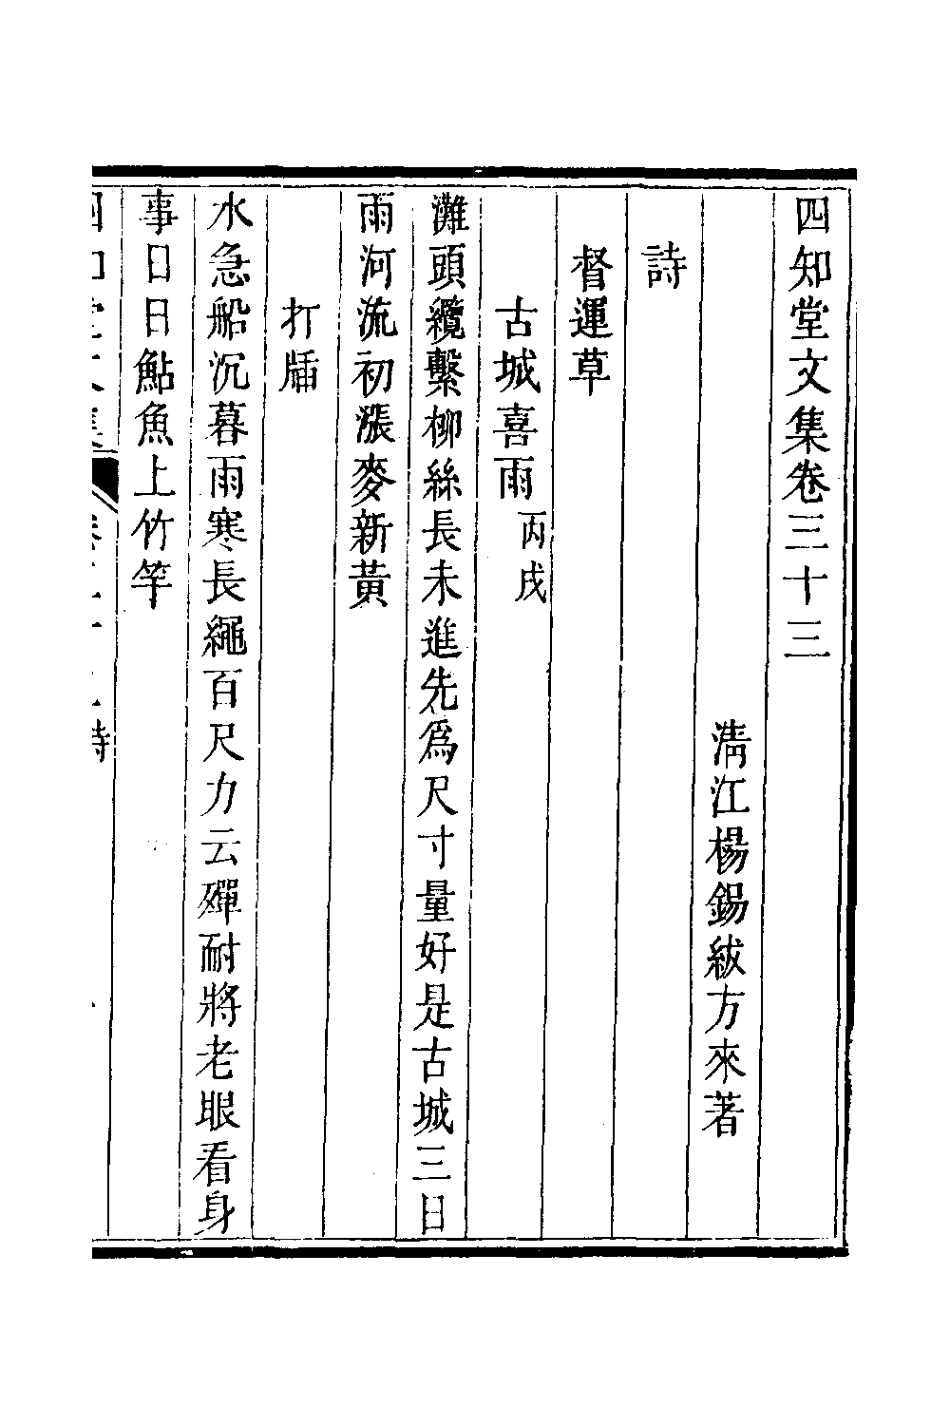 四知堂文集卷三十三
清江楊錫紱方來著
詩
督運草
古城喜雨 丙戌
灘頭纜繫柳絲長未進先爲尺寸量好是古城三日
雨河流初漲麥新黃
打牐
水急船沉暮雨寒長繩百尺力云殫耐將老眼看身
事日日鮎魚上竹竿